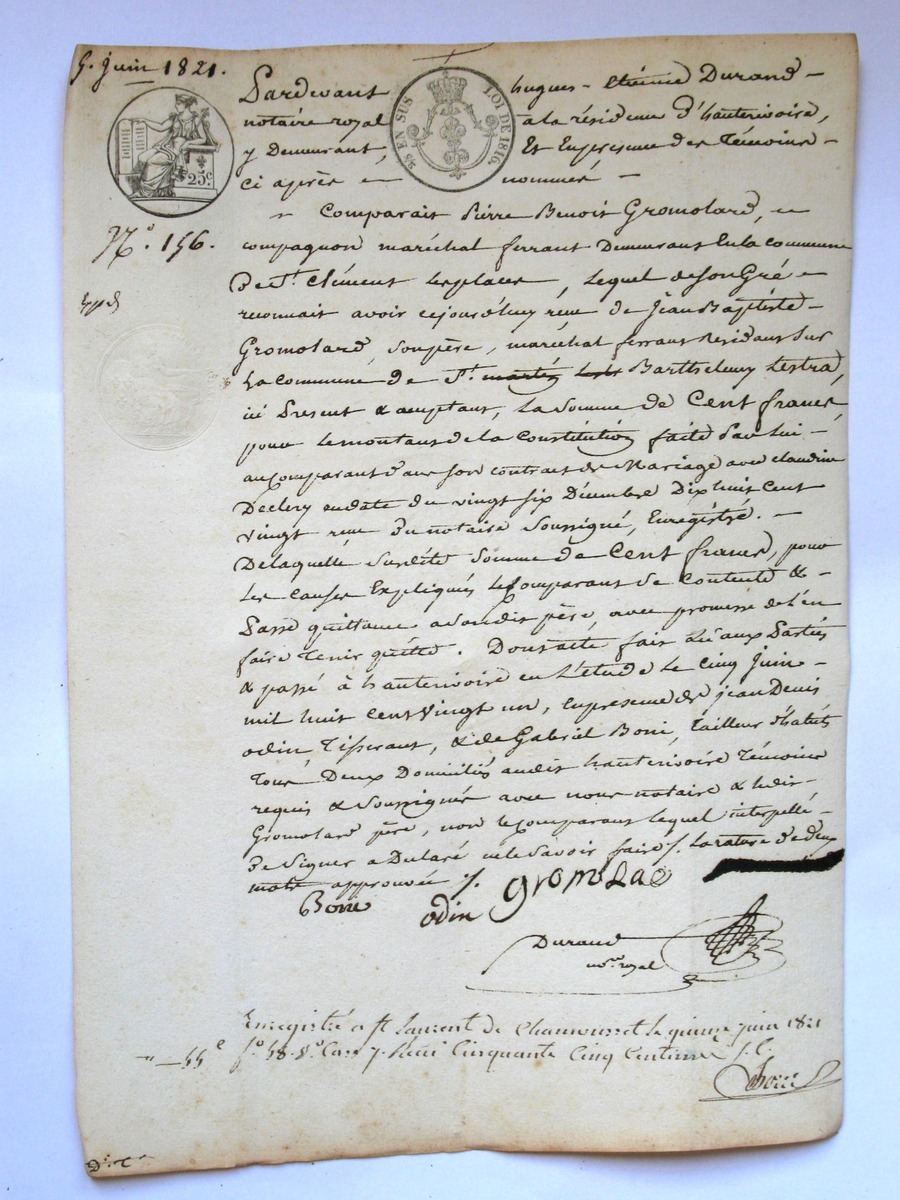 5. Juin 1821.
Pardevant hugues-étienne Durand
notaire royal à la résidence d'hauterivoire,
y Demeurant, Et En présence des Témoins
Ci après nommés
25 EN SUS LOI DE 1816.
25c.
N.o 156.
Expd
Comparait Pierre Benoit Gromolard,
compagnon maréchal ferrant Demeurant En la commune
De St. Clément les places, Lequel de son Gré
reconnait avoir cejourd'huy reçu de Jean Baptiste
Gromolard, son père, maréchal ferrant Residant Sur
La commune de St. martin Barthelemy Lestra,
ici Present & acceptant, La Somme de Cent francs
pour le montant de la Constitution faite Par lui
au Comparant dans son contrat de Mariage avec claudine
Declery en date du vingt six Décembre Dix huit Cent
Vingt reçu Du notaire Soussigné, Enregistré.
De laquelle susdite Somme de Cent francs, pour
Les causes Expliqués Le Comparant Se Contente &
Passe quittance a son dit père, avec promesse de l'en
faire Tenir quitte. Dont acte fait Lu aux Parties
& passé à hauterivoire en L'étude Le Cinq Juin
mil huit Cent Vingt un, En présence de jean Denis
odin Tisserant, & de Gabriel Boni, Tailleur d'habits
Tous Deux Domiciliés audit hauterivoire Témoins
requis & Soussignés avec nous notaire & ledit
Gromolard père, non le Comparant lequel interpellé
De Signer a Déclaré ne le Savoir faire /. La rature De deux
mots approuvée /.
Boni odin gromolard
Durand
nore. royal
Enregistré a St Laurent de Chamousset le quinze juin 1821
55c fo. 48. Vo. Case 7. Reçu Cinquante Cinq Centimes